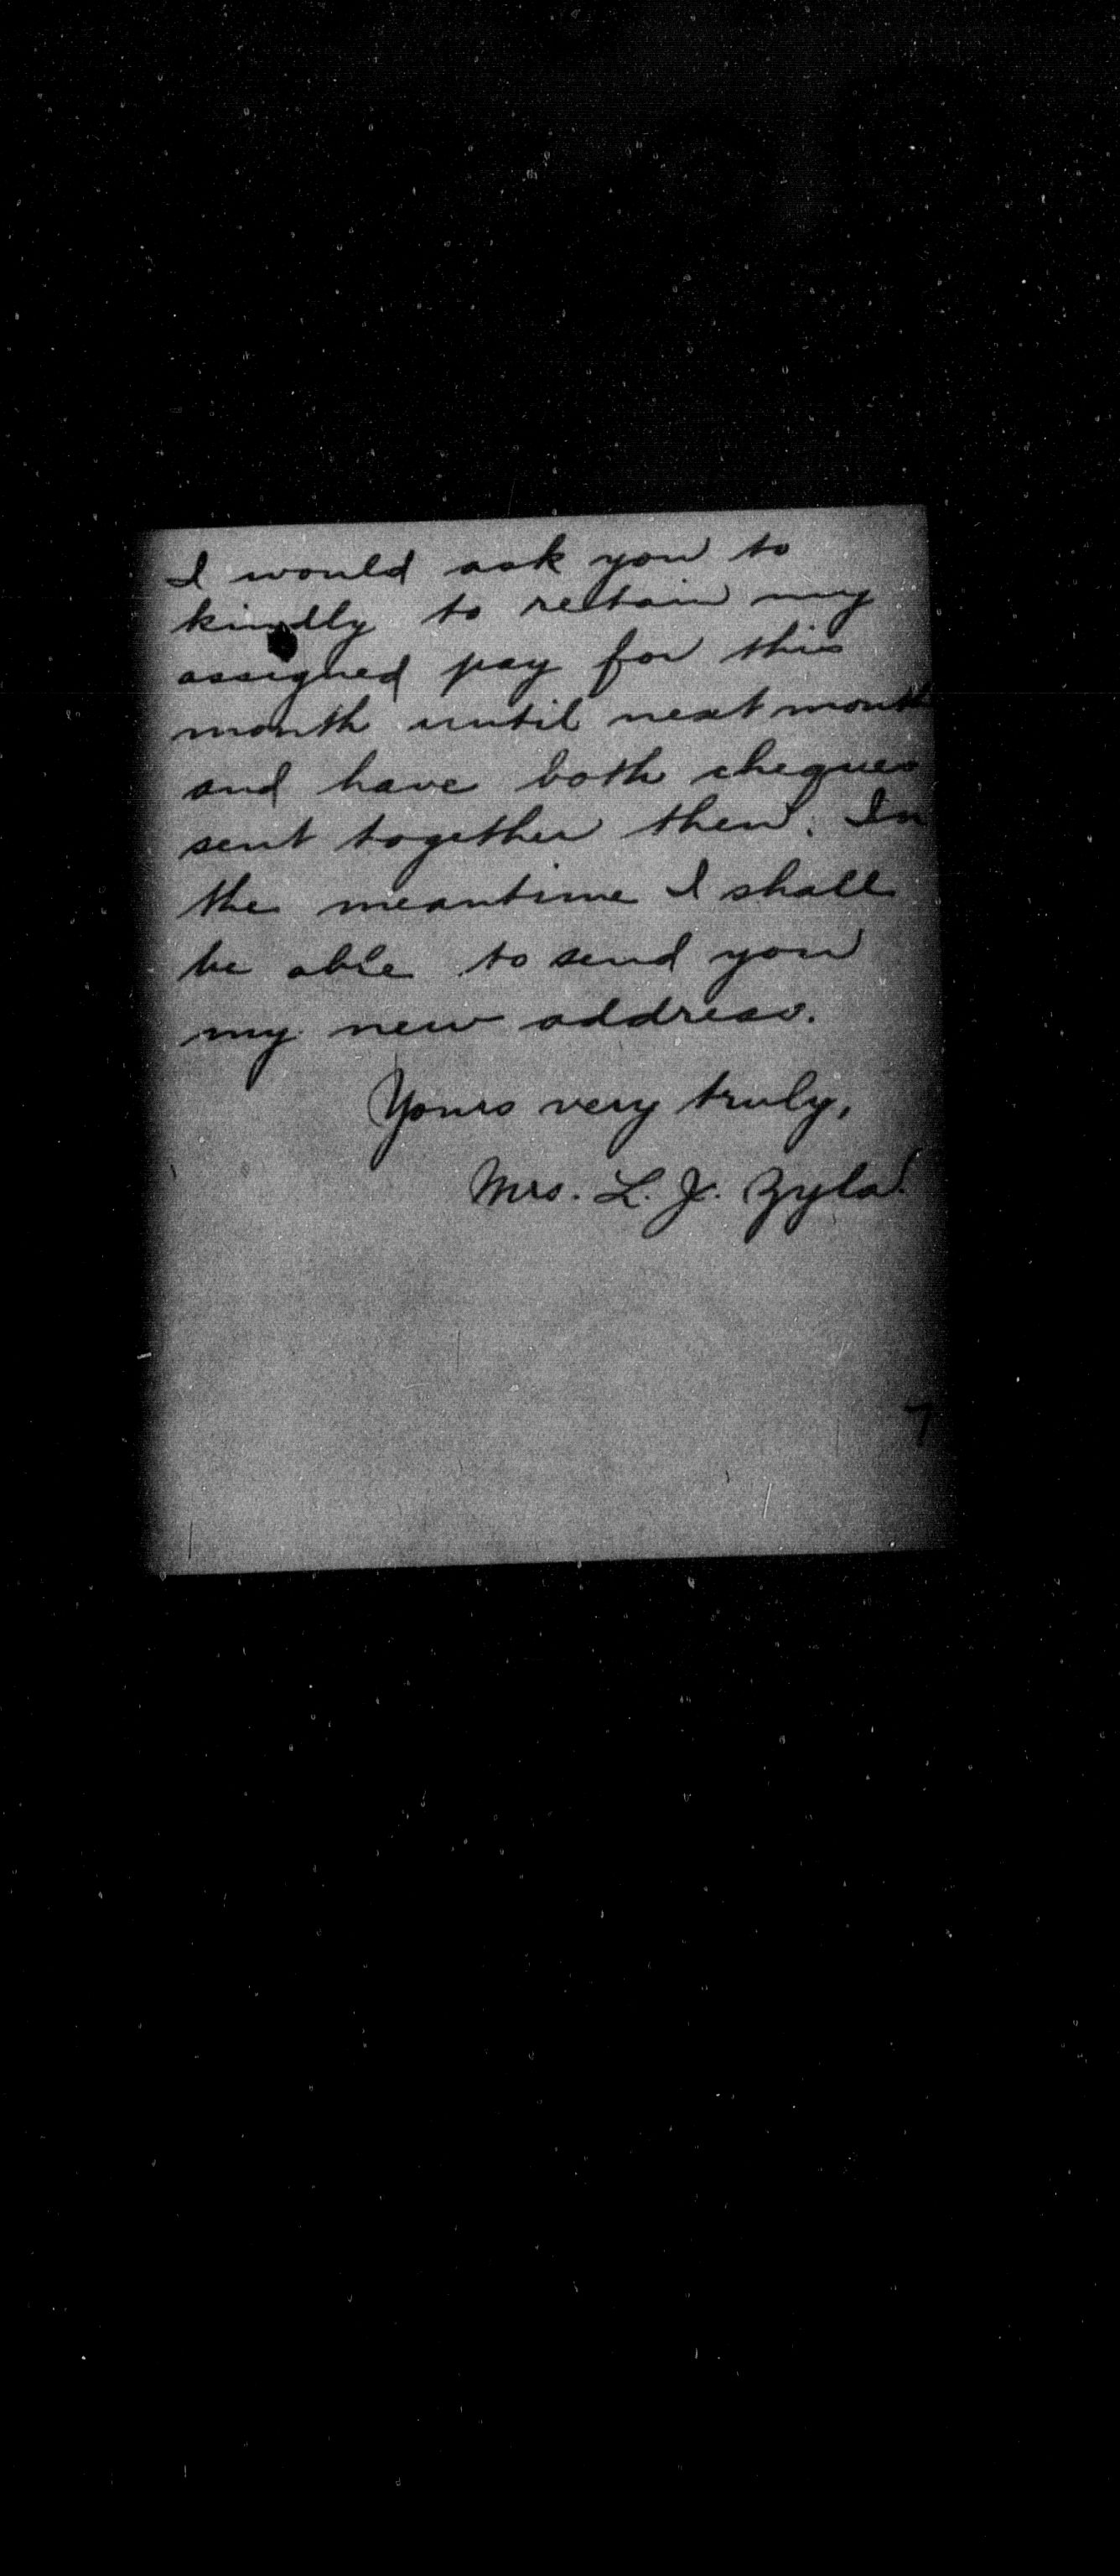 I would ask you to
kindly to retain my
assigned pay for this
month until next month
and have both cheques
sent together then. In
the meantime I shall
be able to send you
my new address.
Yours very truly,
Mrs. L. J. Zyla.
7